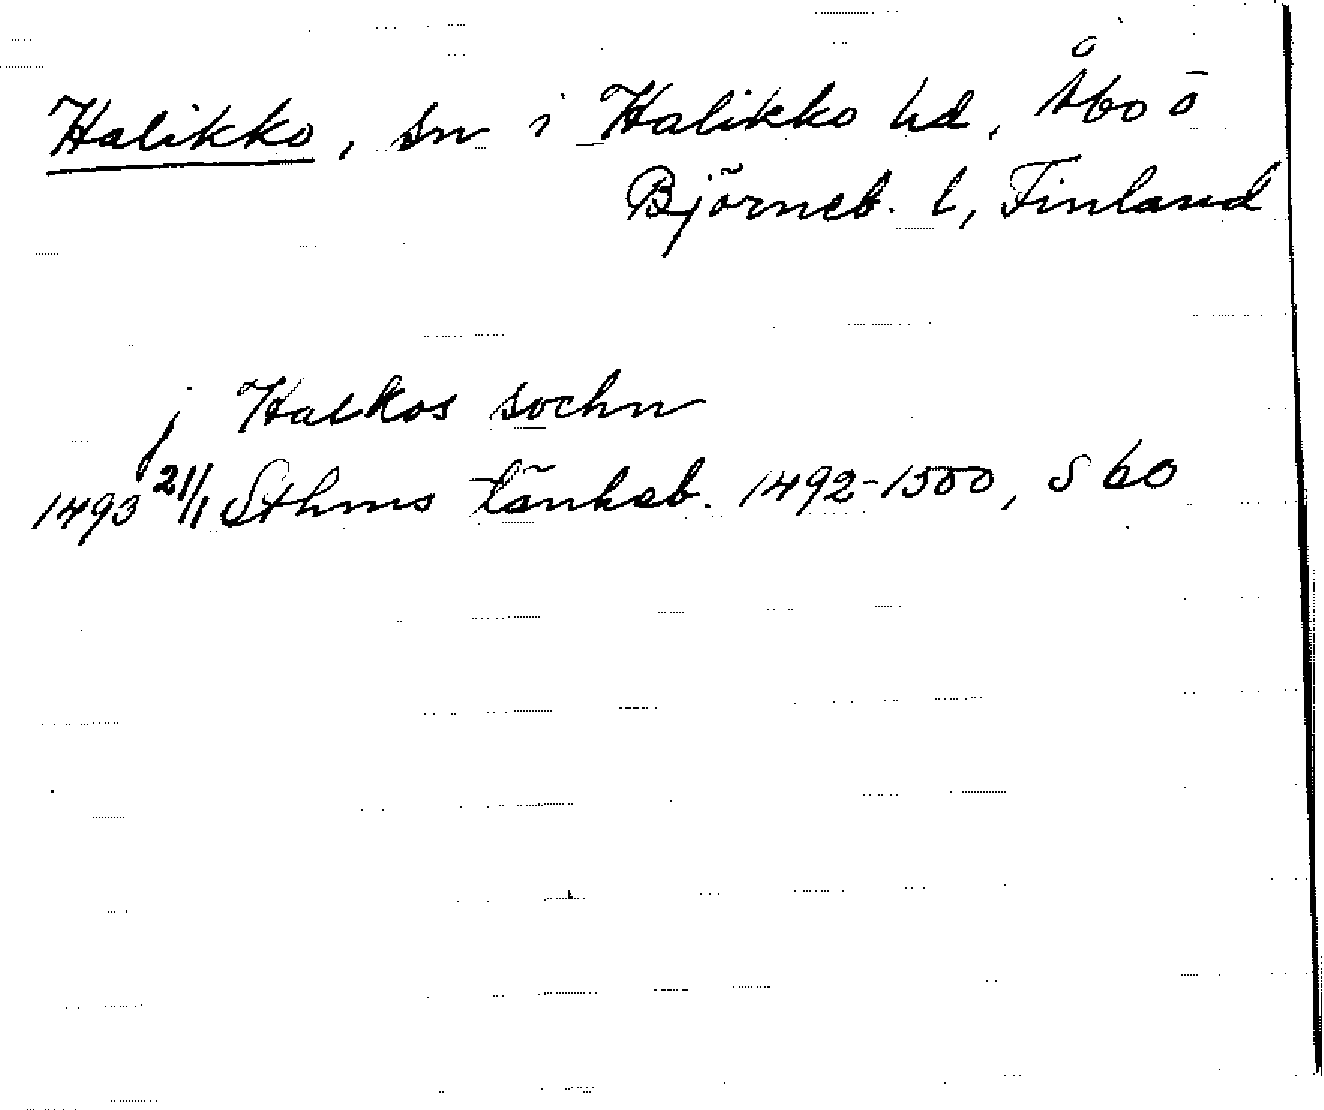 Halikko, sn i Halikko hd, Åbo o
Björneb. l, Finland
j Halkos sochn
1493 21/1 Sthms tänkeb. 1492-1500, S 60